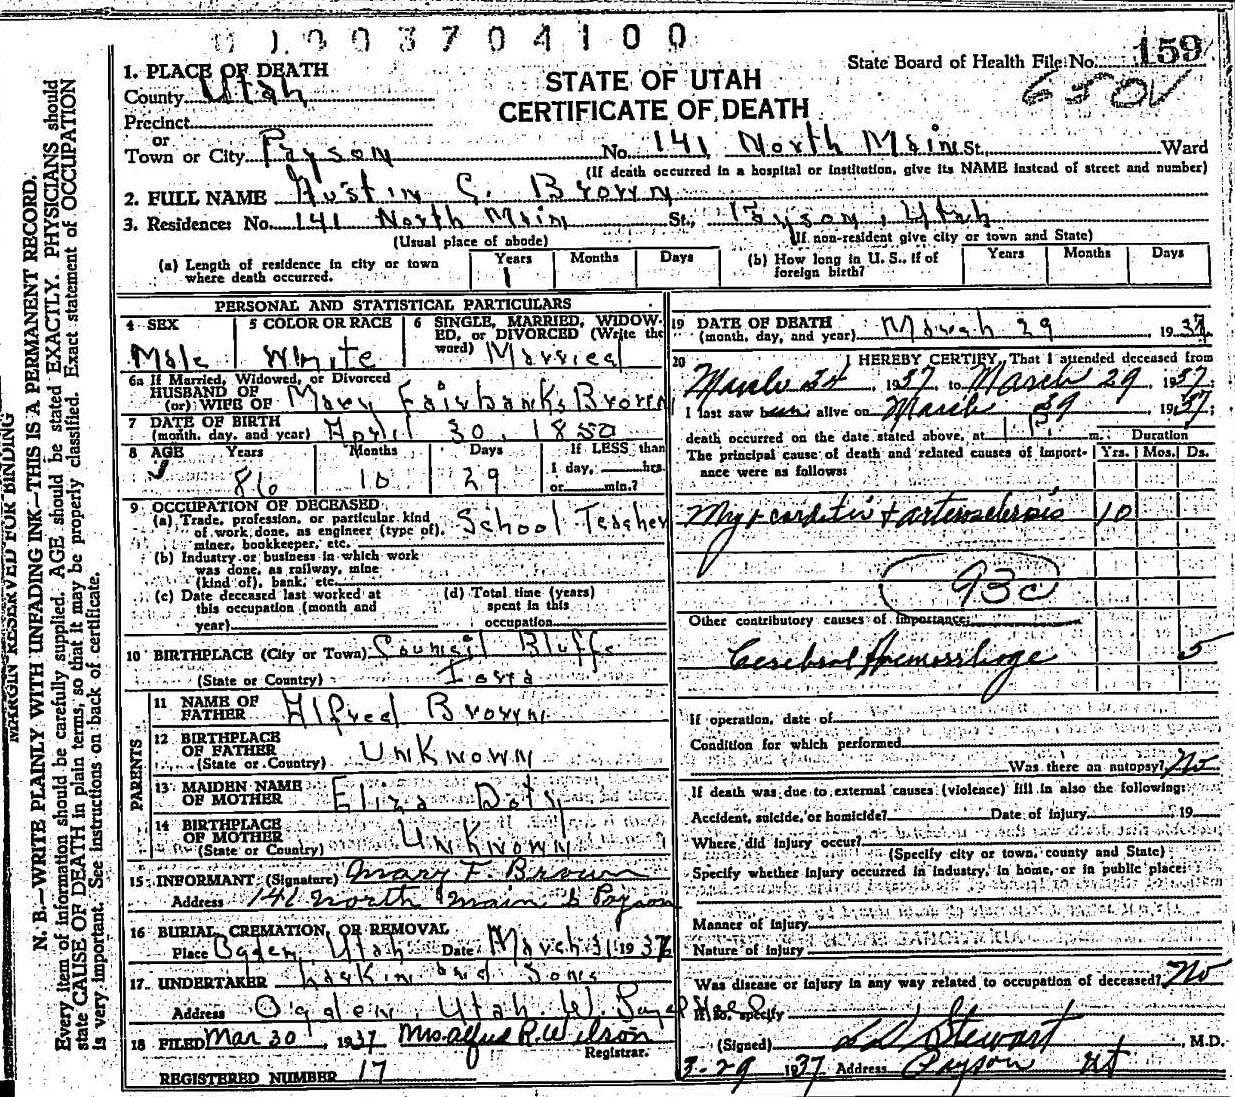 0 1 0 0 3 7 0 4 1 0 0
State Board of Health File No. 159
650V
STATE OF UTAH
CERTIFICATE OF DEATH
1. PLACE OF DEATH
County Utah
Precinct
or
Town or City Payson No. 141 North Main St., Ward
(If death occurred in a hospital or institution, give its NAME instead of street and number)
2. FULL NAME Austin C. Brown
3. Residence: No. 141 North Main St., Payson, Utah
(Usual place of abode) (If non-resident give city or town and State)
(a) Length of residence in city or town where death occurred. Years 1 Months Days
(b) How long in U. S., if of foreign birth? Years Months Days
PERSONAL AND STATISTICAL PARTICULARS
4 SEX Male
5 COLOR OR RACE White
6 SINGLE, MARRIED, WIDOWED, or DIVORCED (Write the word) Married
6a If Married, Widowed, or Divorced
HUSBAND OF
(or) WIFE OF Mary Fairbanks Brown
7 DATE OF BIRTH
(month, day, and year) April 30, 1850
8 AGE Years 86 Months 10 Days 29
If LESS than
1 day, hrs.
or min.?
9 OCCUPATION OF DECEASED
(a) Trade, profession, or particular kind of work done, as engineer (type of), miner, bookkeeper, etc. School Teacher
(b) Industry or business in which work was done, as railway, mine (kind of), bank, etc.
(c) Date deceased last worked at this occupation (month and year)
(d) Total time (years) spent in this occupation
10 BIRTHPLACE (City or Town) Council Bluffs
(State or Country) Iowa
PARENTS
11 NAME OF FATHER Alfred Brown
12 BIRTHPLACE OF FATHER
(State or Country) Unknown
13 MAIDEN NAME OF MOTHER Eliza Doty
14 BIRTHPLACE OF MOTHER
(State or Country) Unknown
15 INFORMANT (Signature) Mary F. Brown
Address 141 North Main St Payson
16 BURIAL, CREMATION, OR REMOVAL
Place Ogden, Utah Date March 31 1937
17 UNDERTAKER Larkin and Sons
Address Ogden, Utah
18 FILED Mar 30, 1937 Mrs. Alfred R. Wilson
Registrar.
REGISTERED NUMBER 17
19 DATE OF DEATH
(month, day, and year) March 29 1937
20 I HEREBY CERTIFY, That I attended deceased from
March 24 1937 to March 29, 1937;
I last saw h alive on March 29 1937;
death occurred on the date stated above, at 1 P. m.
The principal cause of death and related causes of importance were as follows:
Duration
Yrs. Mos. Ds.
Myocarditis + arterosclerosis 10
93c
Other contributory causes of importance:
Cerebral Hemorrhage 5
If operation, date of
Condition for which performed
Was there an autopsy? No
If death was due to external causes (violence) fill in also the following:
Accident, suicide, or homicide? Date of injury 19
Where did injury occur?
(Specify city or town, county and State)
Specify whether injury occurred in industry, in home, or in public place:
Manner of injury
Nature of injury
Was disease or injury in any way related to occupation of deceased? No
If so, specify
(Signed) L D Stewart, M.D.
3-29 1937 Address Payson Ut
MARGIN RESERVED FOR BINDING
N. B.—WRITE PLAINLY WITH UNFADING INK—THIS IS A PERMANENT RECORD.
Every item of information should be carefully supplied. AGE should be stated EXACTLY. PHYSICIANS should
state CAUSE OF DEATH in plain terms, so that it may be properly classified. Exact statement of OCCUPATION
is very important. See instructions on back of certificate.